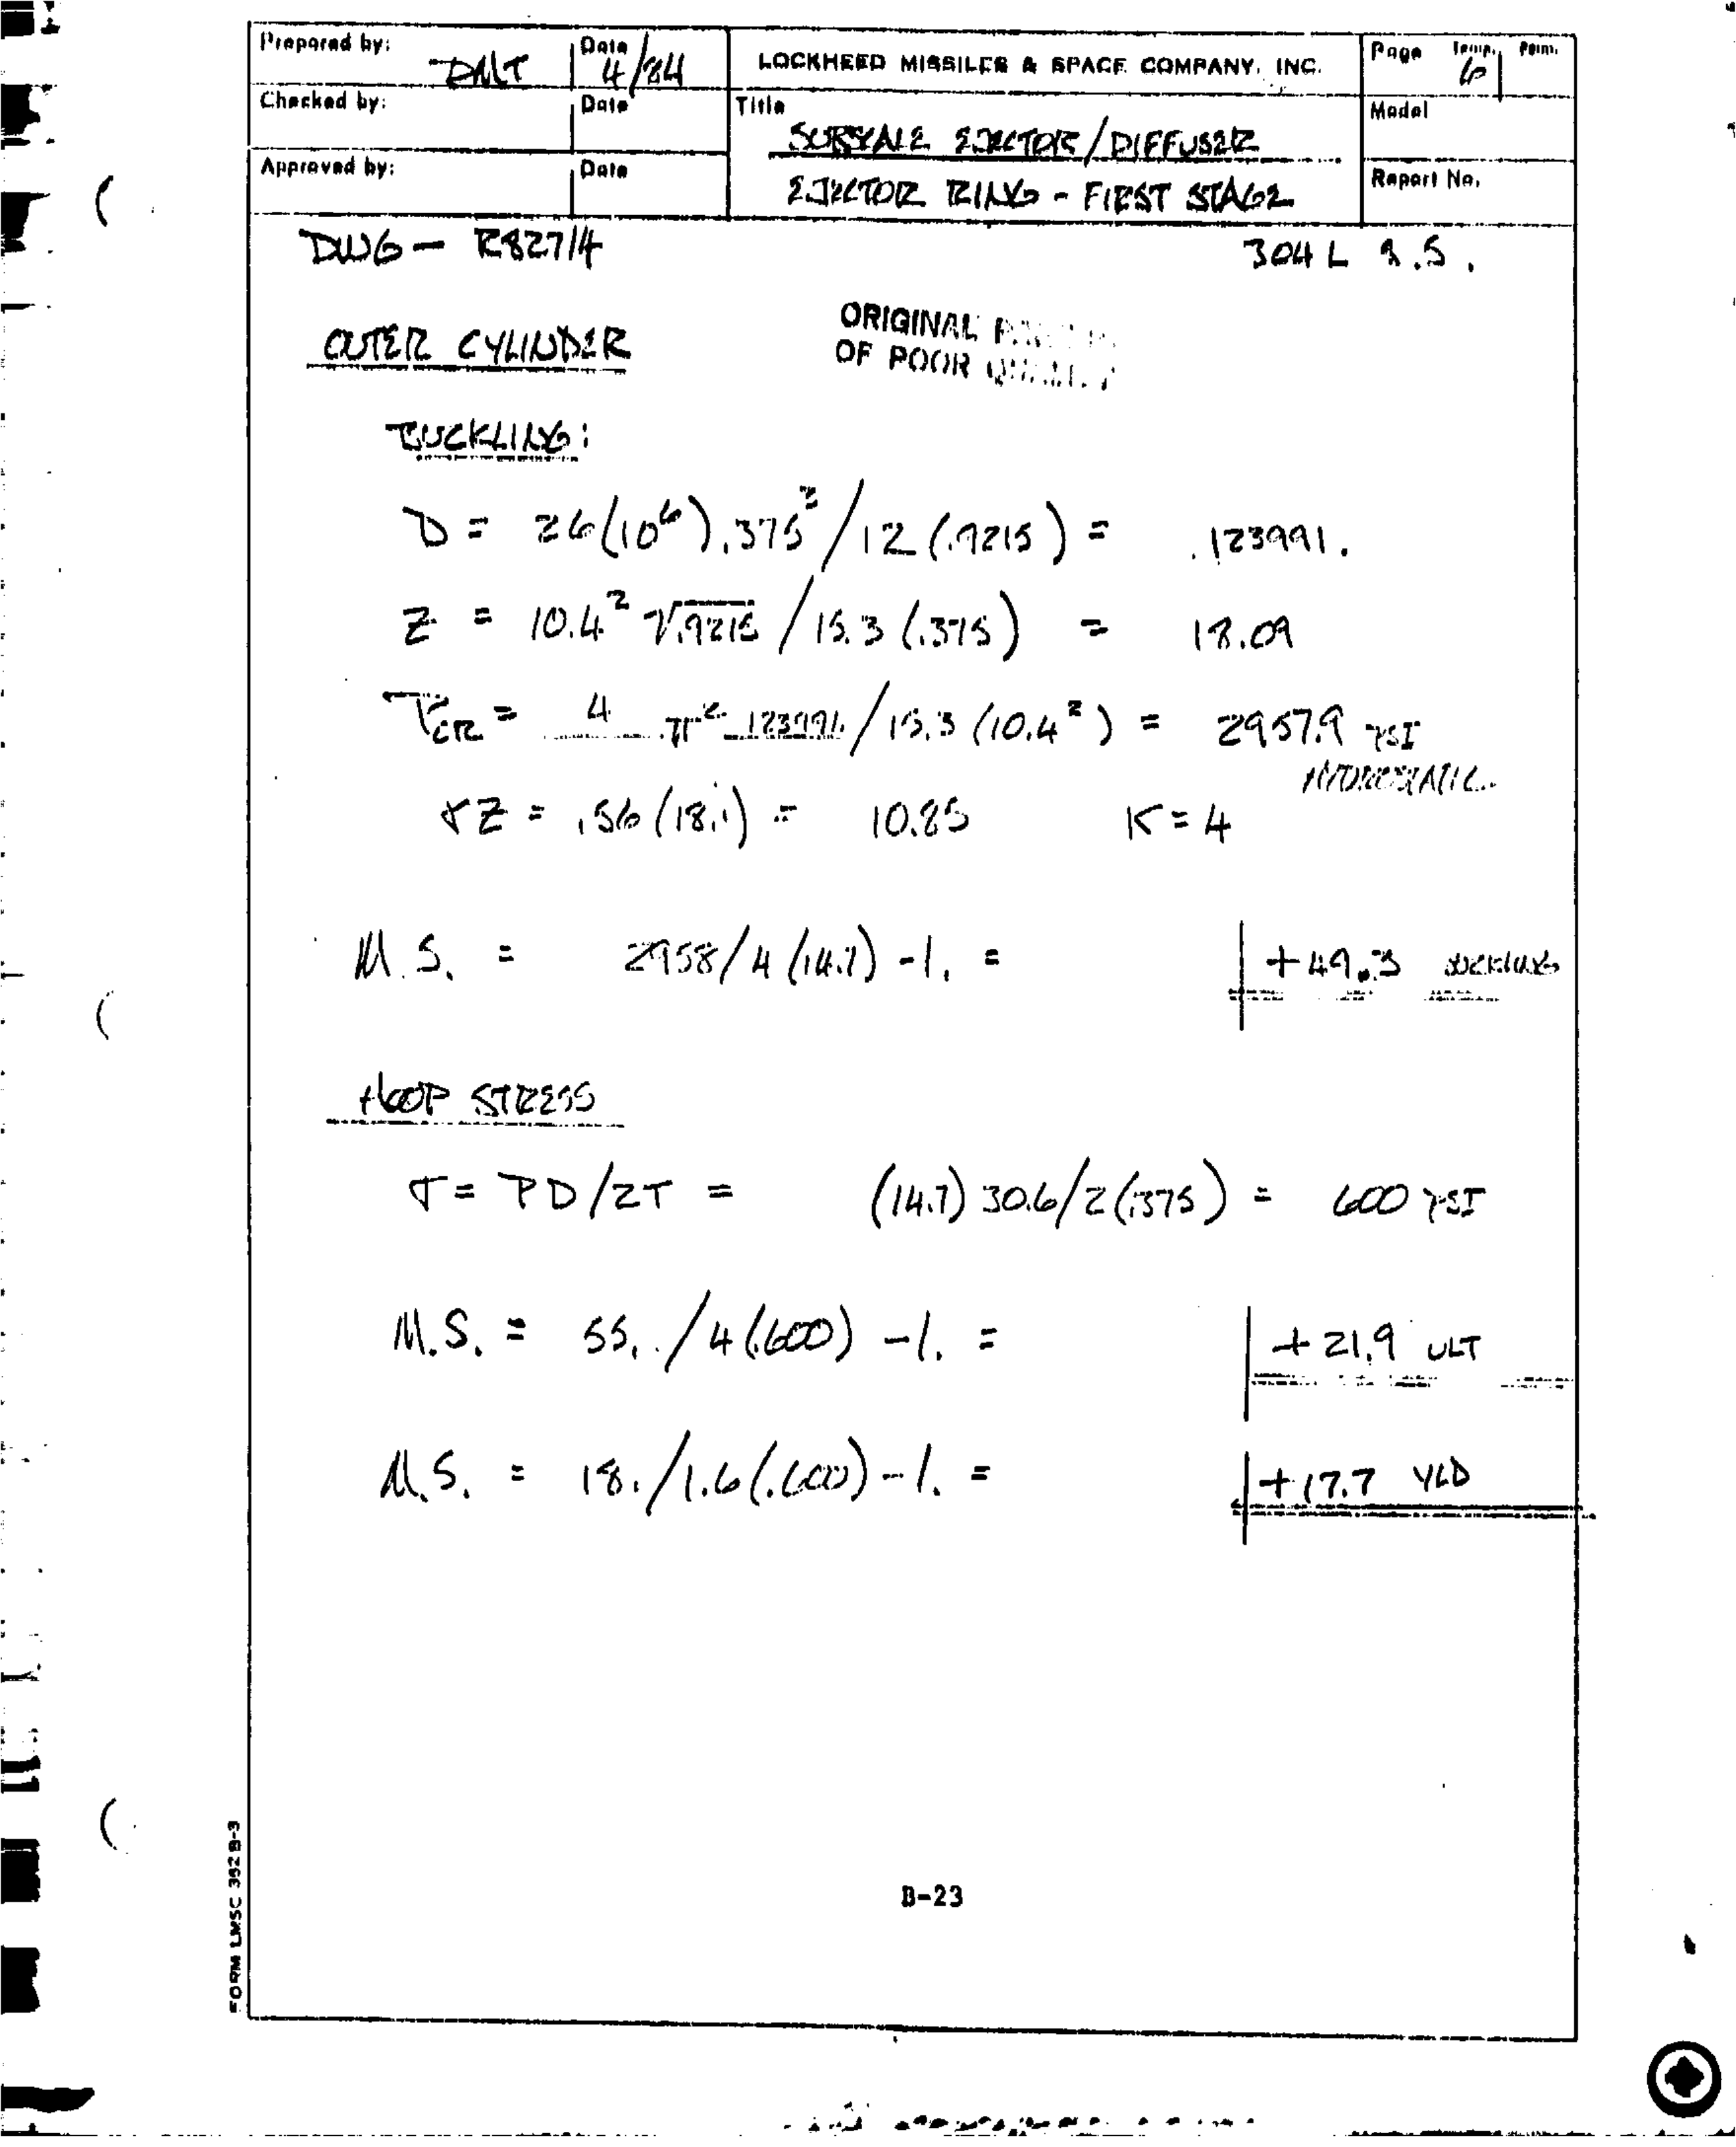 Prepared by: DMT Date 4/84 LOCKHEED MISSILES & SPACE COMPANY, INC. Page Temp. 6 Perm.
Checked by: Date Title SUBSCALE EJECTOR/DIFFUSER Model
Approved by: Date EJECTOR RING - FIRST STAGE Report No.
DWG - R82714 304 L S.S.
ORIGINAL
OF POOR
OUTER CYLINDER
BUCKLING:
D = 26(10⁶).375³/12(.9215) = 123991.
Z = 10.4² √.9215 / 15.3 (.375) = 18.09
PCR = 4 π² 123991/15.3(10.4²) = 2957.9 PSI
HYDROSTATIC
γZ = .56(18.1) = 10.85 K = 4
M.S. = 2958/4(14.7) -1. = +49.3 BUCKLING
HOOP STRESS
σ = PD/2T = (14.7) 30.6/2(.375) = 600 PSI
M.S. = 55./4(.600) -1. = +21.9 ULT
M.S. = 18./1.6(.600) -1. = +17.7 YLD
B-23
FORM LMSC 352 B-3